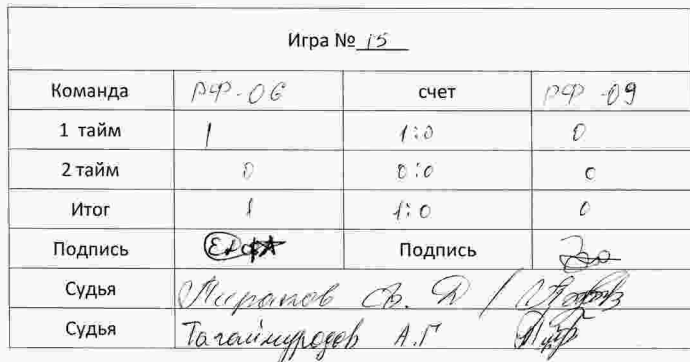 Игра № 15
Команда РФ-06 счет РФ-09
1 тайм 1 1:0 0
2 тайм 0 0:0 0
Итог 1 1:0 0
Подпись Подпись
Судья
Судья Тагаймуродов А.Г